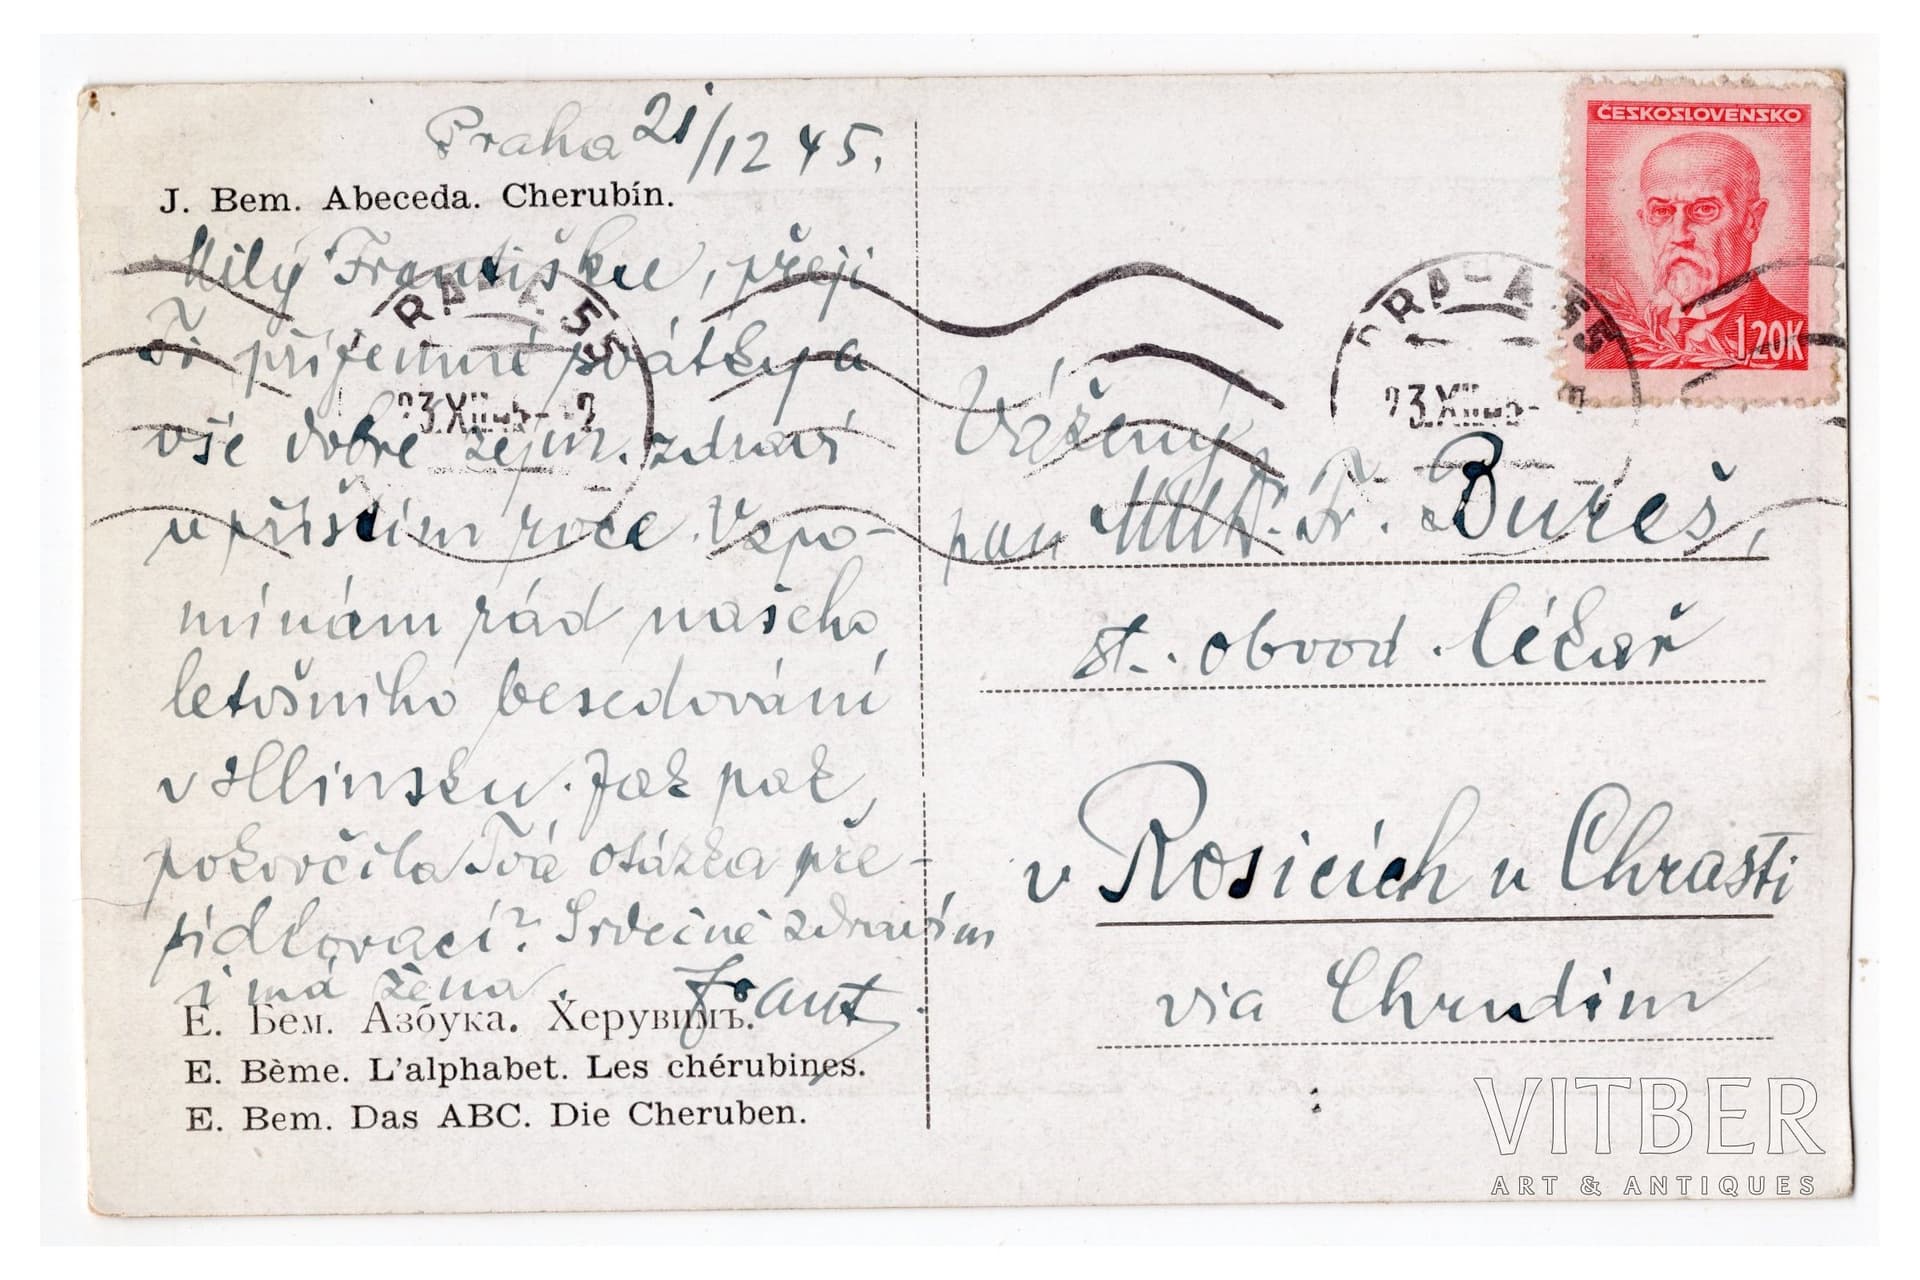 Praha 21/12 45.
J. Bem. Abeceda. Cherubín.
Milý Františku, přeji
Ti příjemné svátky a
vše dobré zejm. zdraví
v příštím roce. Vzpo-
mínám rád našeho
letošního besedování
v Hlinsku. Jak pak
pokročila Tvá otázka pře-
sidlovací? Srdečně zdravím
i má žena. Frant.
E. Бем. Азбука. Херувимъ.
E. Bème. L'alphabet. Les chérubines.
E. Bem. Das ABC. Die Cheruben.
ČESKOSLOVENSKO
1,20K
PRAHA 55
23.XII.45-
PRAHA 55
23.XII.45-
Vážený
pan MUDr. Fr. Bureš,
st. obvod. lékař
v Rosicích u Chrasti
via Chrudim
VITBER
ART & ANTIQUES